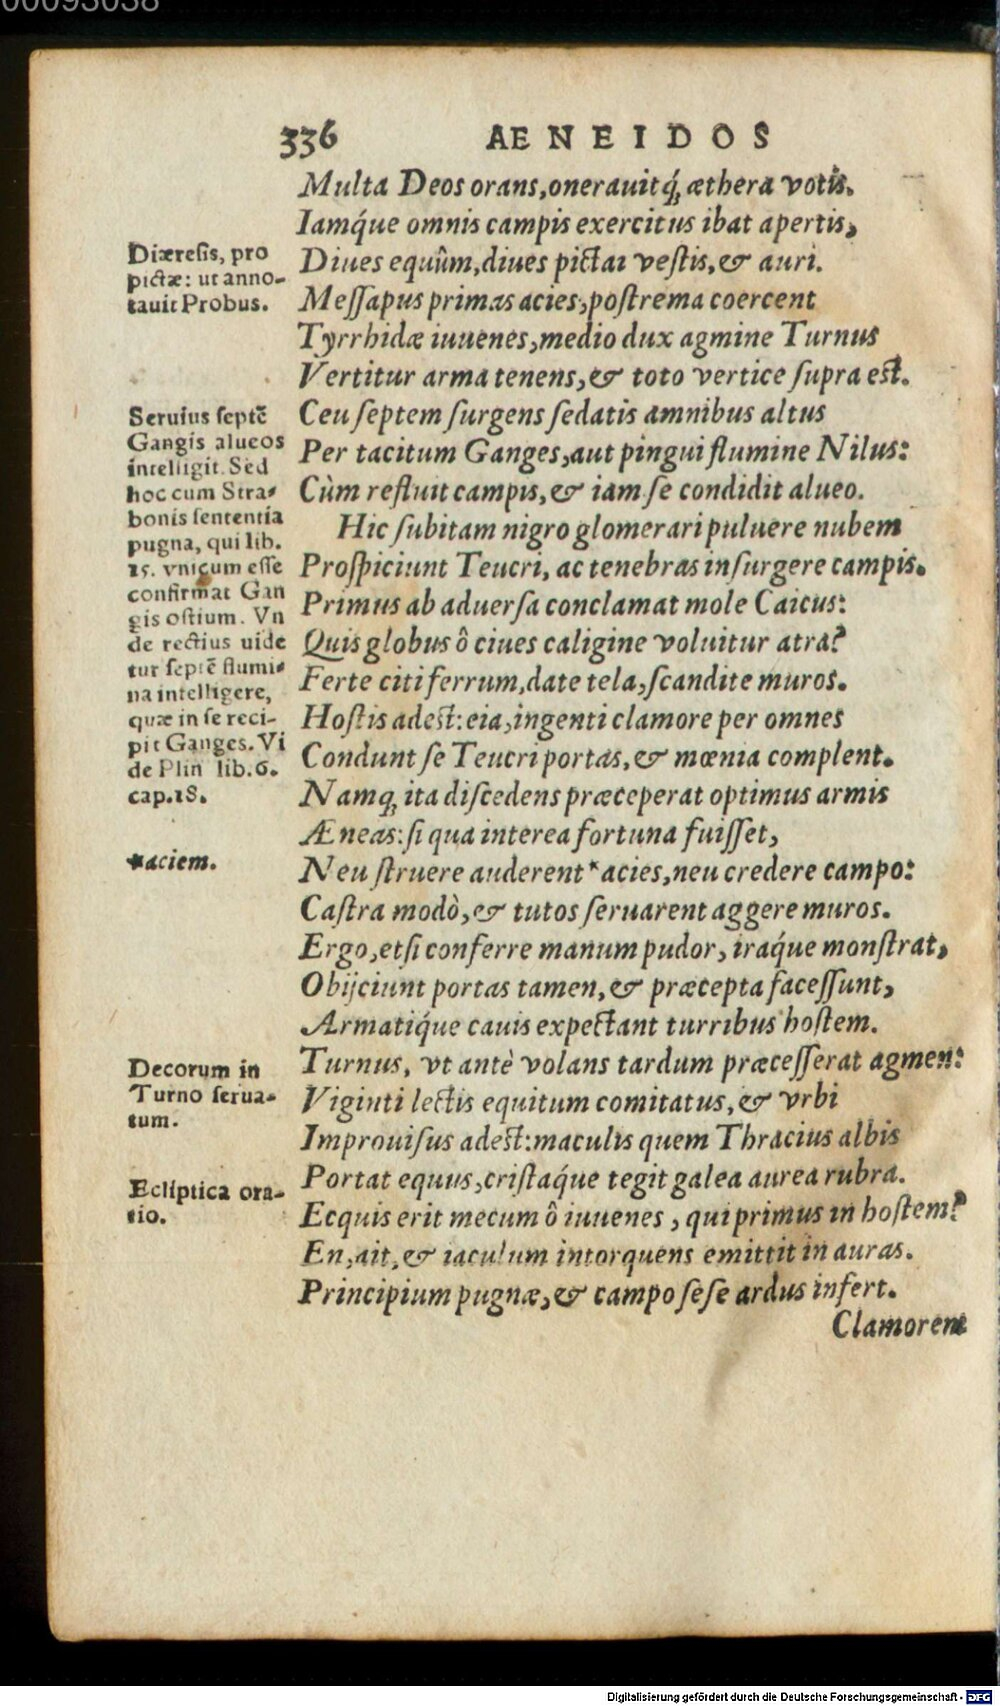 00093038
336 AENEIDOS
Multa Deos orans, onerauitq́; æthera votis.
Iamq́ue omnis campis exercitus ibat apertis,
Diues equûm, diues pictaı vestis, & auri.
Messapus primas acies, postrema coercent
Tyrrhidæ iuuenes, medio dux agmine Turnus
Vertitur arma tenens, & toto vertice supra est.
Ceu septem surgens sedatis amnibus altus
Per tacitum Ganges, aut pingui flumine Nilus:
Cùm refluit campis, & iam se condidit alueo.
Hic subitam nigro glomerari puluere nubem
Prospiciunt Teucri, ac tenebras insurgere campis.
Primus ab aduersa conclamat mole Caicus:
Quis globus ô ciues caligine voluitur atra?
Ferte citi ferrum, date tela, scandite muros.
Hostis adest: eia, ingenti clamore per omnes
Condunt se Teucri portas, & mœnia complent.
Namq; ita discedens præceperat optimus armis
Æneas: si qua interea fortuna fuisset,
Neu struere auderent *acies, neu credere campo:
Castra modò, & tutos seruarent aggere muros.
Ergo, etsi conferre manum pudor, iraq́ue monstrat,
Obijciunt portas tamen, & præcepta facessunt,
Armatiq́ue cauis expectant turribus hostem.
Turnus, vt antè volans tardum præcesserat agmen:
Viginti lectis equitum comitatus, & vrbi
Improuisus adest: maculis quem Thracius albis
Portat equus, cristaq́ue tegit galea aurea rubra.
Ecquis erit mecum ô iuuenes, qui primus in hostem?
En, ait, & iaculum intorquens emittit in auras.
Principium pugnæ, & campo sese ardus infert.
Clamorem
Diæresis, pro
pictæ: ut anno-
tauit Probus.
Seruius septē
Gangis alueos
intelligit. Sed
hoc cum Stra-
bonis sententia
pugna, qui lib.
15. vnicum esse
confirmat Gan
gis ostium. Vn
de rectius uide
tur septē flumi-
na intelligere,
quæ in se reci-
pit Ganges. Vi
de Plin lib. 6.
cap. 18.
*aciem.
Decorum in
Turno serua-
tum.
Ecliptica ora-
tio.
Digitalisierung gefördert durch die Deutsche Forschungsgemeinschaft - DFG